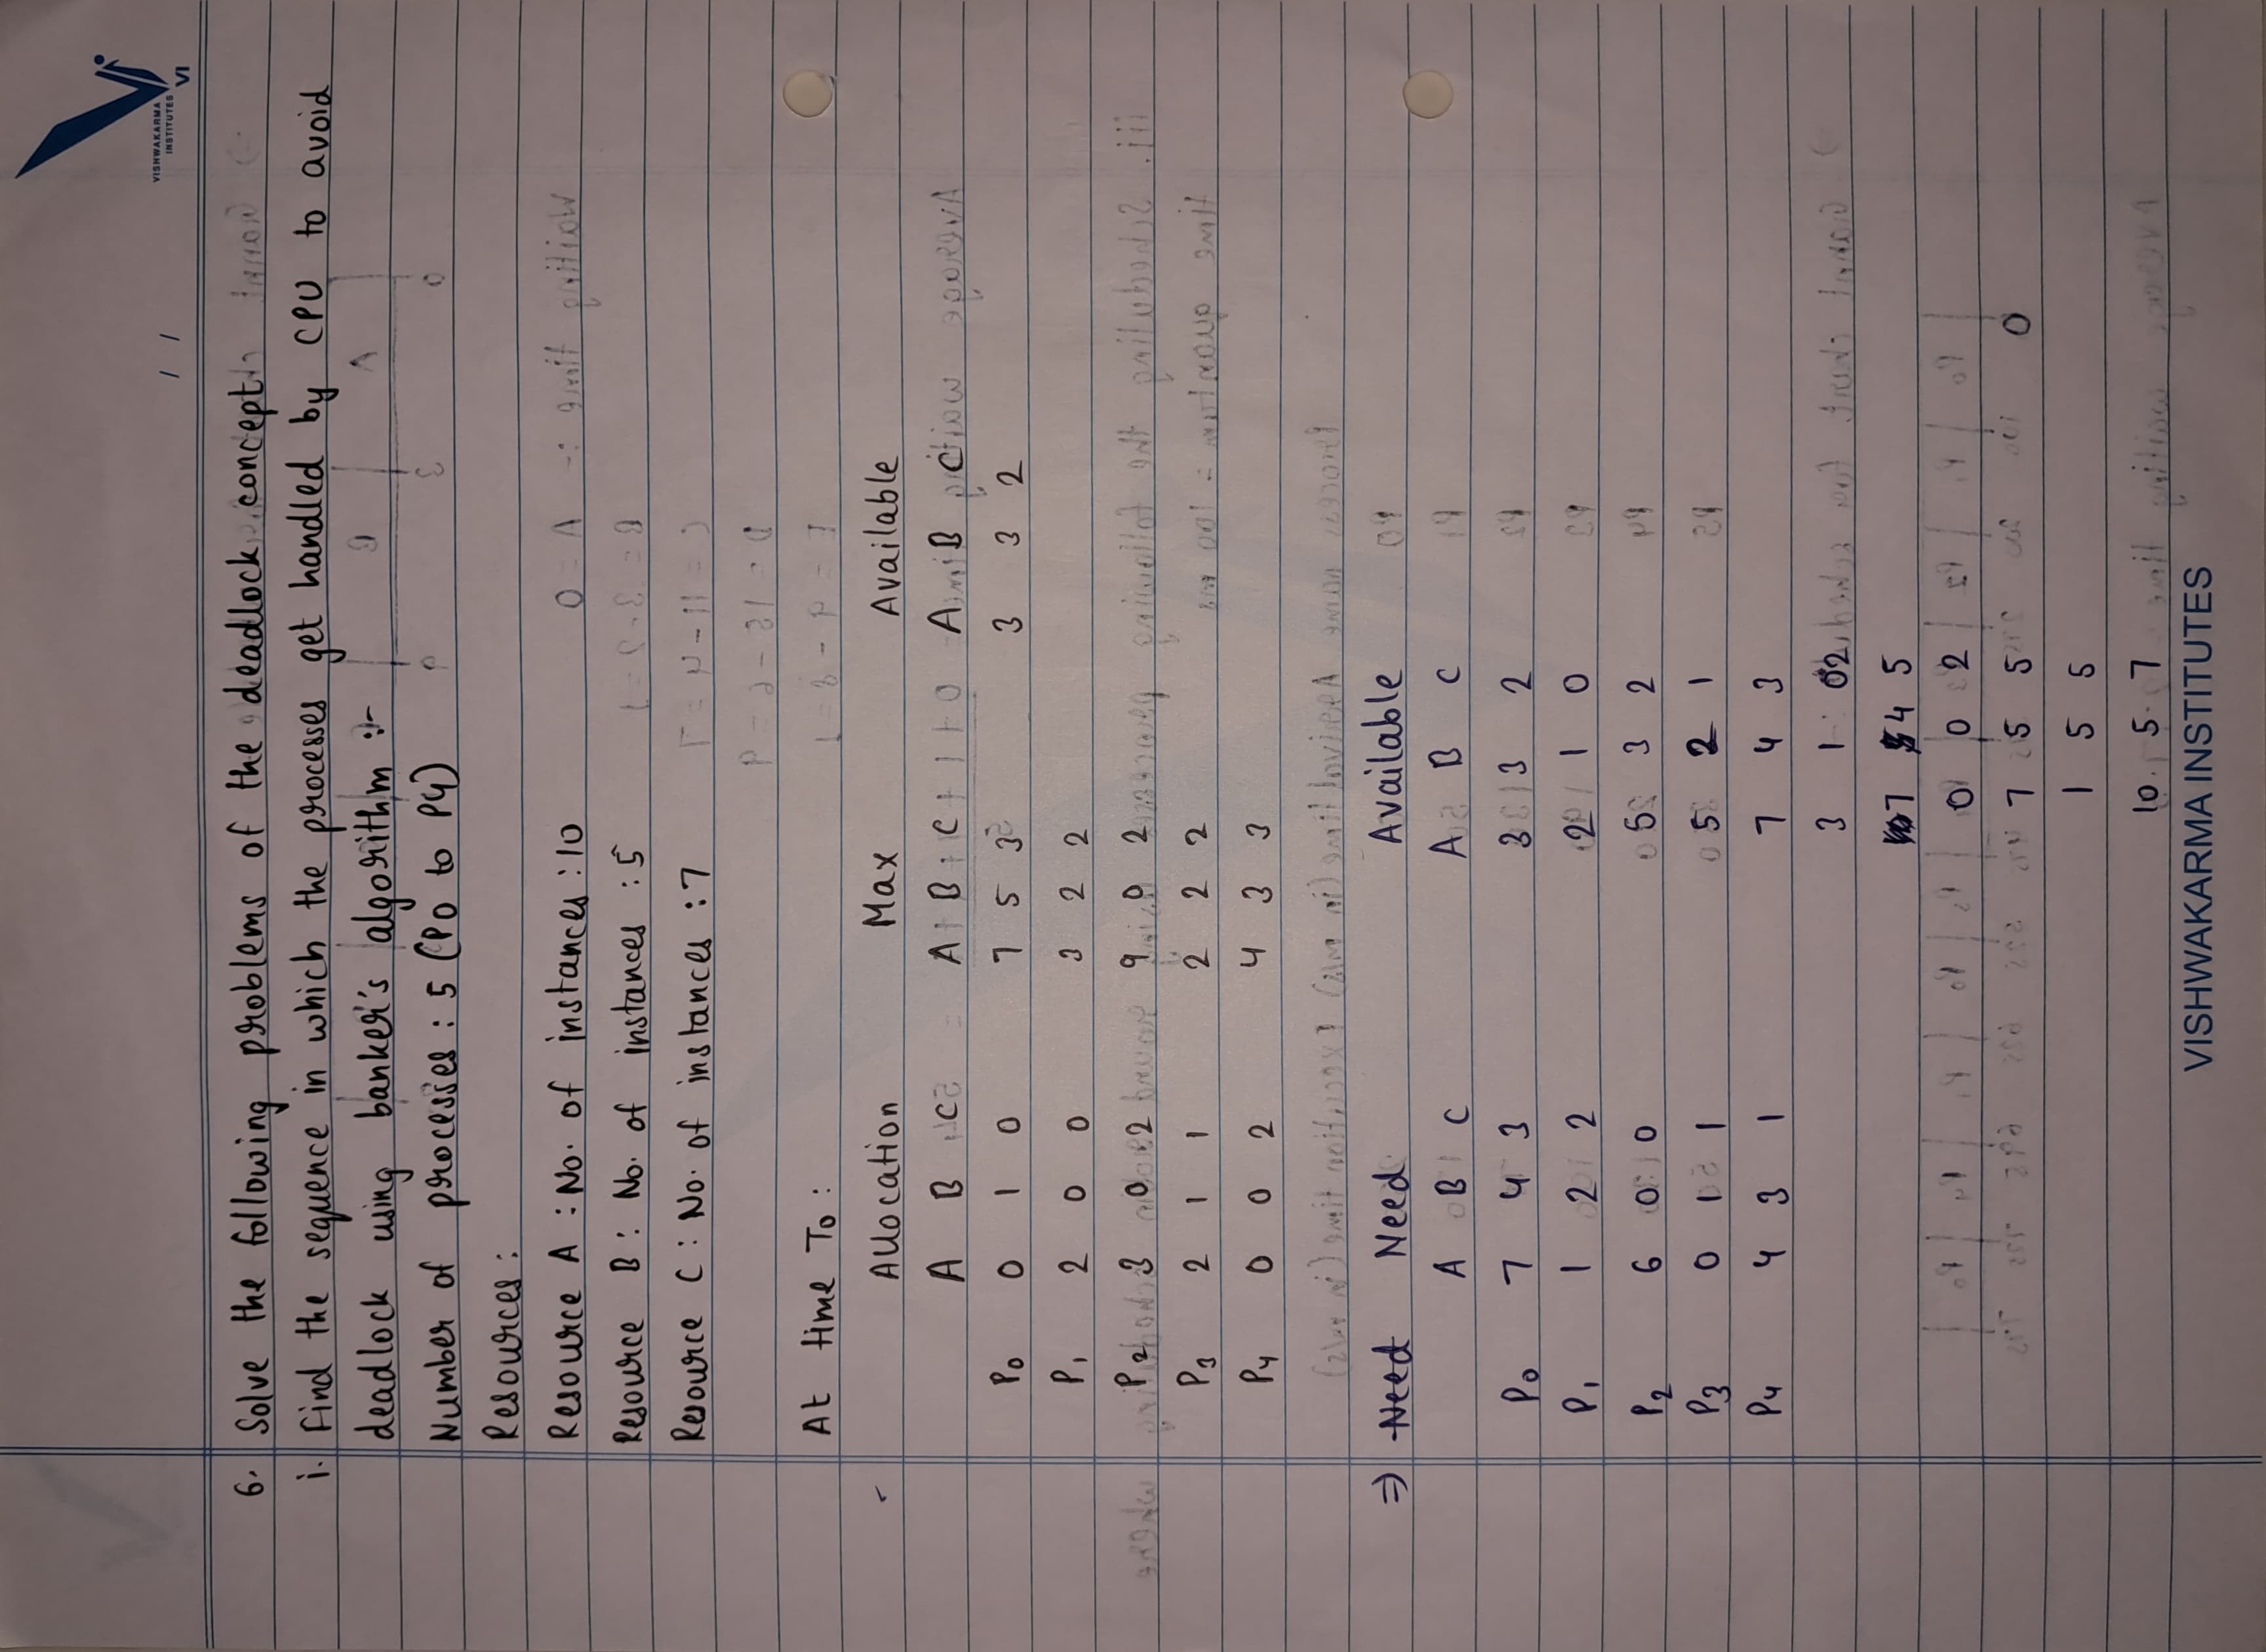 VISHWAKARMA
INSTITUTES
VI
/ /
6. Solve the following problems of the deadlock concept.
i. Find the sequence in which the processes get handled by CPU to avoid
deadlock using banker's algorithm :-
Number of processes : 5 (P0 to P4)
Resources :
Resource A : No. of instances : 10
Resource B : No. of instances : 5
Resource C : No. of instances : 7
At time To :
Allocation Max Available
A B C A B C A B C
P0 0 1 0 7 5 3 3 3 2
P1 2 0 0 3 2 2
P2 3 0 2 9 0 2
P3 2 1 1 2 2 2
P4 0 0 2 4 3 3
⇒ Need Need Available
A B C A B C
P0 7 4 3 3 3 2
P1 1 2 2 2 1 0
P2 6 0 0 5 3 2
P3 0 1 1 5 2 1
P4 4 3 1 7 4 3
3 1 02
7 4 5
0 0 2
7 5 5 0
1 5 5
10. 5. 7
VISHWAKARMA INSTITUTES